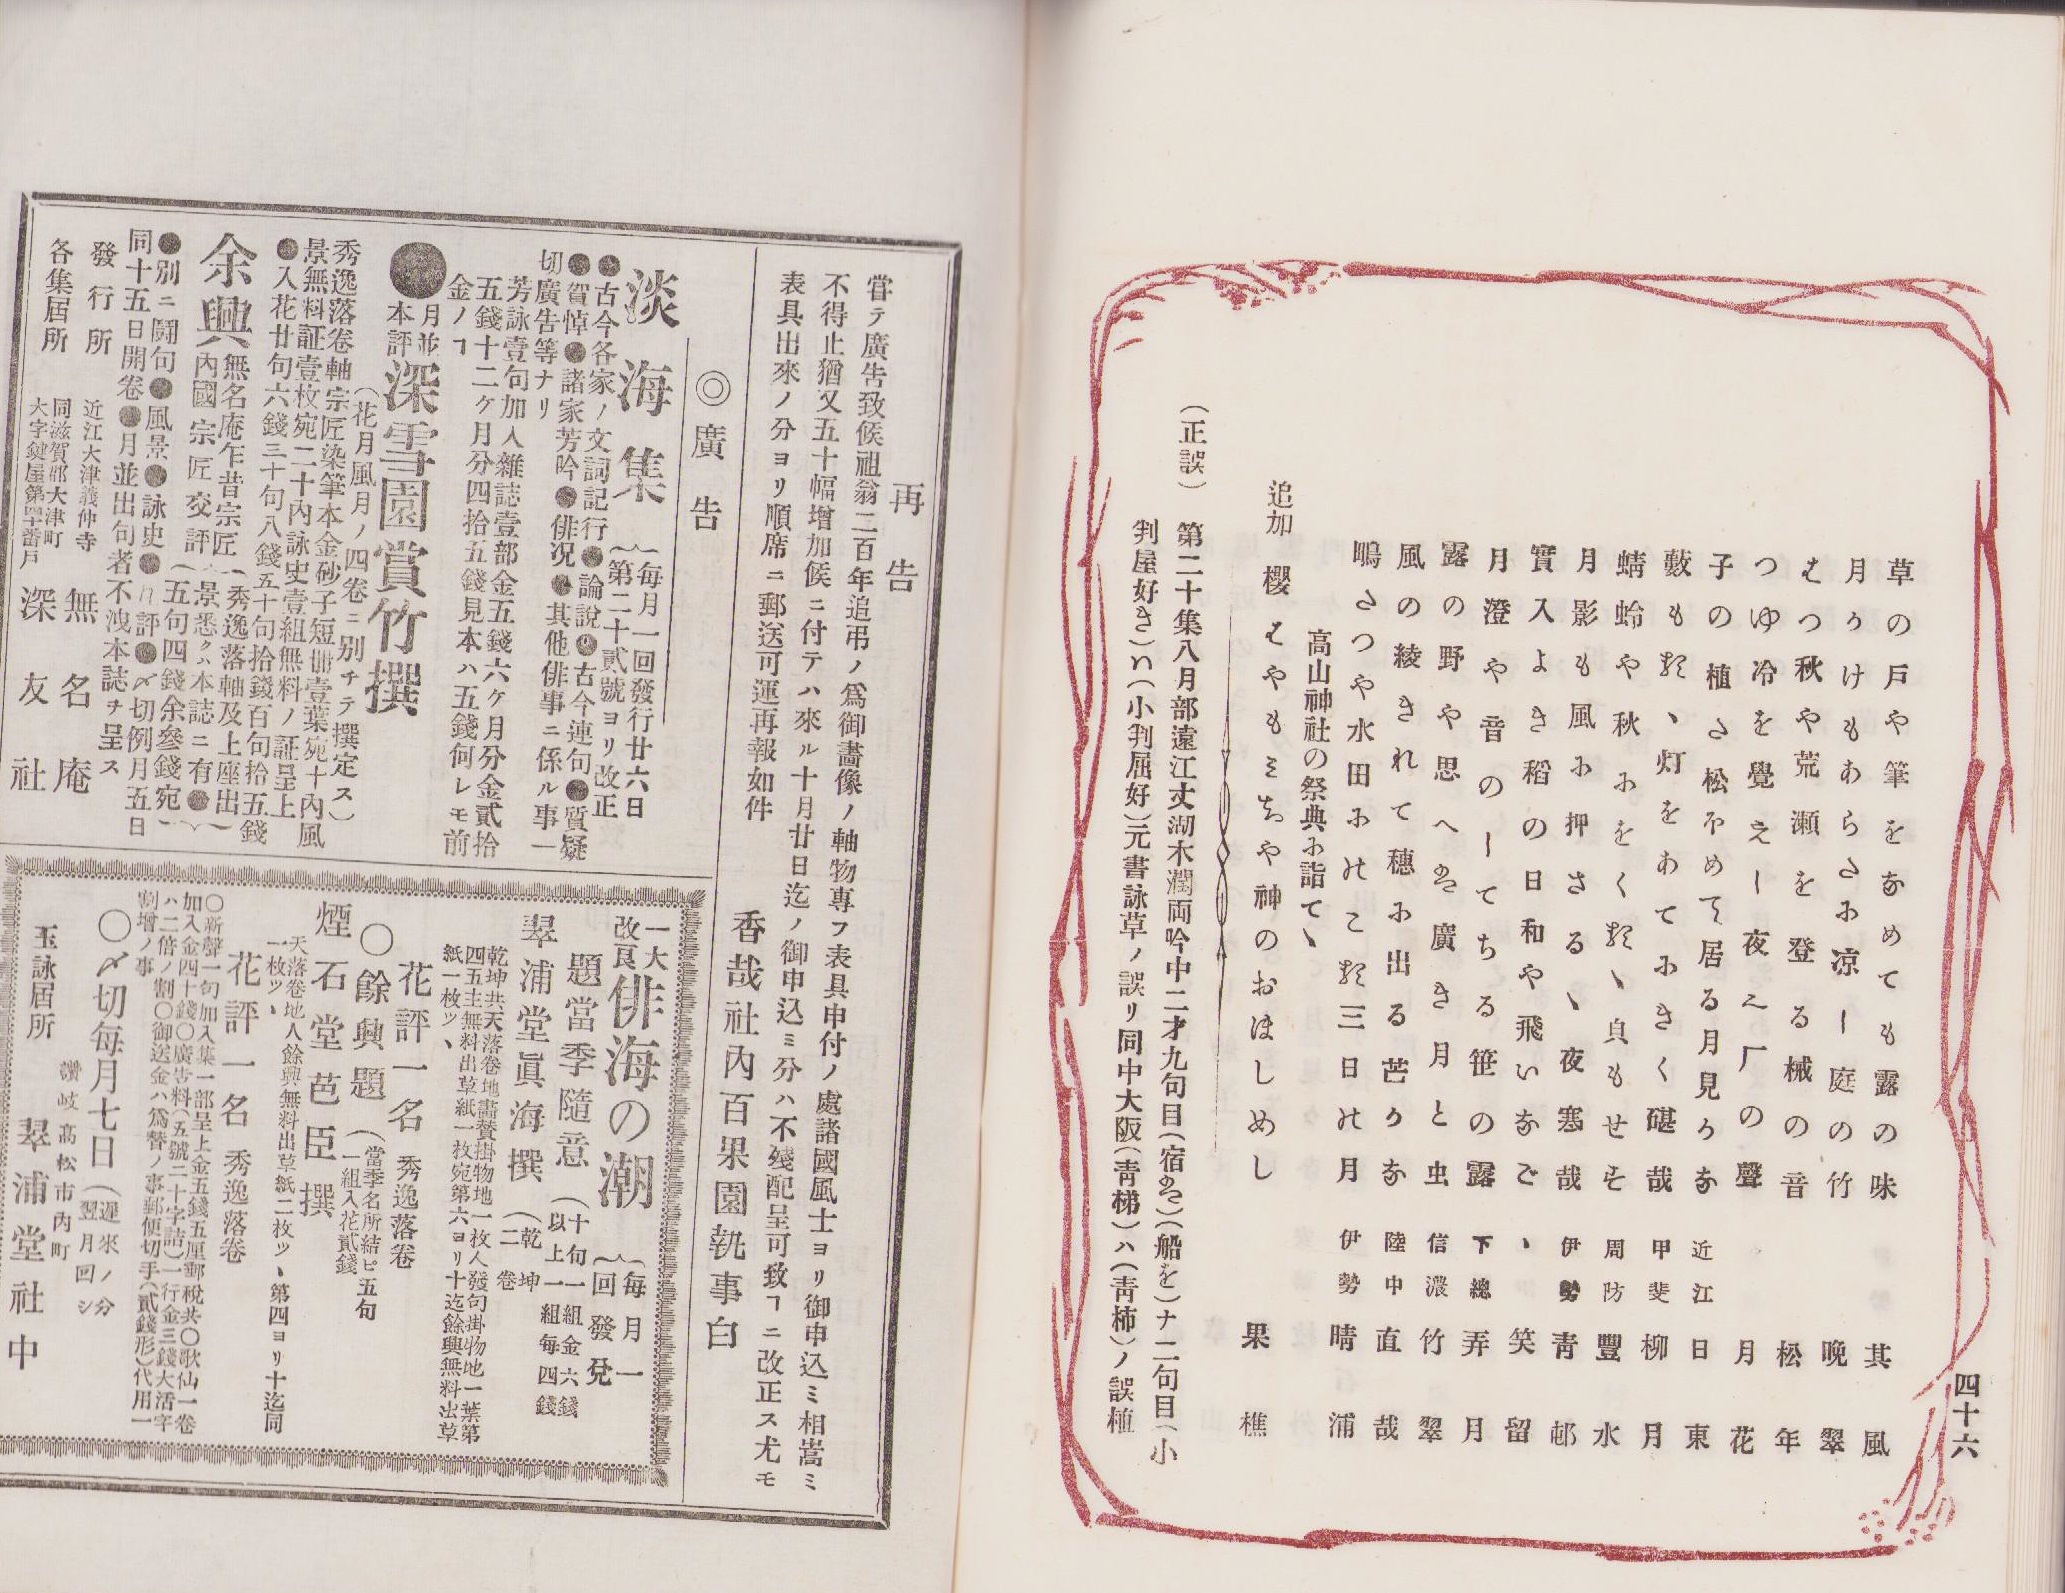 四十六
草の戸や筆をなめても露の味 其風
月かけもあらたに凉し庭の竹 晩翠
はつ秋や荒瀬を登る械の音 松年
つゆ冷を覺えし夜や厂の聲 月花
子の植た松ほめて居る月見かな 近江 日東
藪も
灯をあててきく碪哉 甲斐 柳月
蜻蛉や秋にをく
貞もせす 周防 豐水
月影も風に押さるゝ夜寒哉 伊勢 靑邨
實入よき稻の日和や飛いなご 〃 笑留
月澄や音のしてちる笹の露 下總 弄月
露の野や思へは廣き月と虫 信濃 竹翠
風の綾きれて穗に出る芒かな 陸中 直哉
鳴たつや水田に
三日の月 伊勢 晴浦
高山神社の祭典に詣て、
追加 櫻はやもみちや神のおほしめし 果樵
(正誤) 第二十集八月部遠江丈湖木潤両吟中二才九句目(宿
)(船を)ナ二句目(小
判屋好き)ハ(小判屈好)元書詠草ノ誤リ同中大阪(靑梯)ハ(靑柿)ノ誤植
再告
甞テ廣告致候祖翁二百年追弔ノ爲御畵像ノ軸物專フ表具申付ノ處諸國風士ヨリ御申込ミ相嵩ミ
不得止猶又五十幅增加候ニ付テハ來ル十月廿日迄ノ御申込ミ分ハ不殘配呈可致ヿニ改正ス尤モ
表具出來ノ分ヨリ順席ニ郵送可運再報如件
香哉社內百果園執事白
◎廣告
淡海集 (每月一回發行廿六日
(第二十貳號ヨリ改正
●古今各家ノ文詞記行●論說●古今連句●質疑
●賀悼●諸家芳吟●俳况●其他俳事ニ係ル事一
切廣告等ナリ
芳詠壹句加入雜誌壹部金五錢六ケ月分金貳拾
五錢十二ケ月分四拾五錢見本ハ五錢何レモ前
金ノヿ
●月並本評 深雪園賞竹撰
(花月風月ノ四卷ニ別チテ撰定ス)
秀逸落卷軸宗匠染筆本金砂子短冊壹葉宛十內風
景無料証壹枚宛二十內詠史壹組無料ノ証呈上
●入花廿句六錢三十句八錢五十句拾錢百句拾五錢
余興 無名庵乍昔宗匠 內國宗匠交評
(秀逸落軸及上座出)
(景悉クハ本誌ニ有●)
(五句四錢余參錢宛)
●別ニ鬪句●風景●詠史●月評●〆切例月五日
同十五日開卷●月並出句者不洩本誌チ呈ス
發行所 近江大津義仲寺 無名庵
各集届所 同滋賀郡大津町大字鍵屋第四十番戸 深友社
一大改良 俳海の潮 (每月一回發兌
題當季隨意 (十句一組金六錢以上一組每四錢
翠浦堂眞海撰 (乾坤二卷
乾坤共天落卷地畵賛掛物地一枚人發句掛物地一葉第
四五主無料出草紙一枚宛第六ヨリ十迄餘興無料出草
紙一枚ツヽ
花評一名 秀逸落卷
◯餘興題 (當季名所結ヒ五句一組入花貳錢
煙石堂芭臣撰
天落卷地人餘興無料出草紙二枚ツヽ第四ヨリ十迄同
一枚ツヽ
花評一名 秀逸落卷
◯新聲一句加入集一部呈上金五錢五厘郵稅共◯歌仙一卷
加入金四十錢◯廣告料(五號二十字詰)一行金三錢大活字
ハ二倍ノ割◯御送金ハ爲替ノ事郵便切手(貳錢形)代用一
割增ノ事
◯〆切每月七日 (遲來ノ分翌月回シ
玉詠届所 讚岐高松市內町 翠浦堂社中